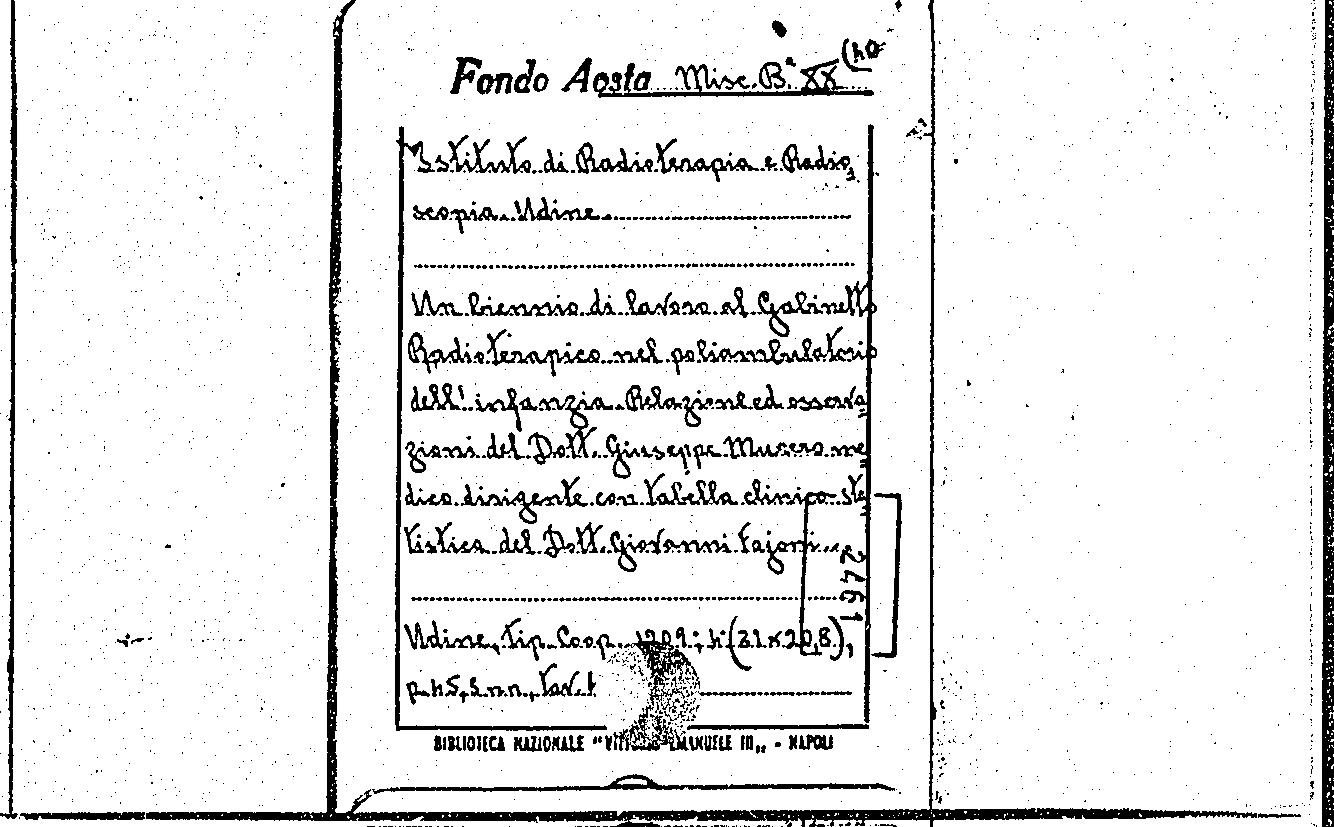 Fondo Aosta Misc. B.ª XX (40
Istituto di Radioterapia e Radio-
scopia. Udine.
Un biennio di lavoro al Gabinetto
Radioterapico nel poliambulatorio
dell'infanzia. Relazione ed osserva=
zioni del Dott. Giuseppe Murero me=
dico dirigente con tabella clinico-sta=
tistica del Dott. Giovanni Fajoni...
2461
Udine, Tip. Coop. 1909; 4° (31 x 20,8),
p. 45, 3 n.n., tav. 1
BIBLIOTECA NAZIONALE "VITTORIO EMANUELE III„ - NAPOLI